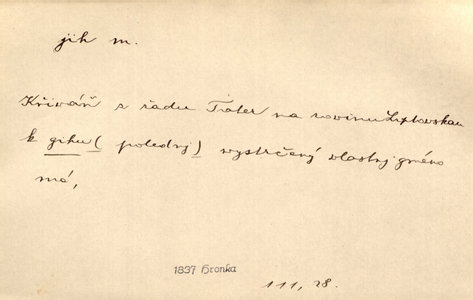 jih m.
Křiváň z řadu Tater na rovinu Liptovskau
k gihu ( poledny ) wystrčený vlastnj gméno
má,
1837 Hronka
111, 28.